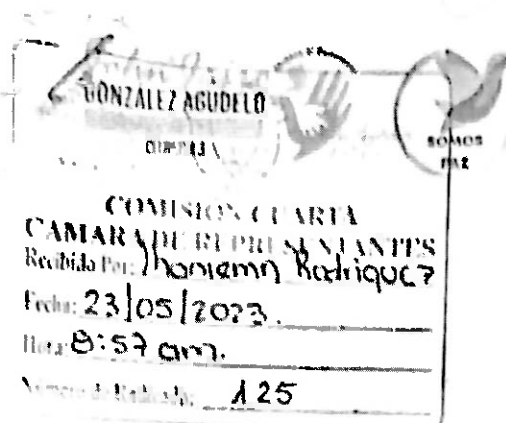 GONZALEZ AGUDELO
SOMOS
PAZ
COMISION CUARTA
CAMARA DE REPRESENTANTES
Recibida Por: Rodriguez
Fecha: 23/05/2023.
Hora: 8:57 am.
Número de Radicado: 125